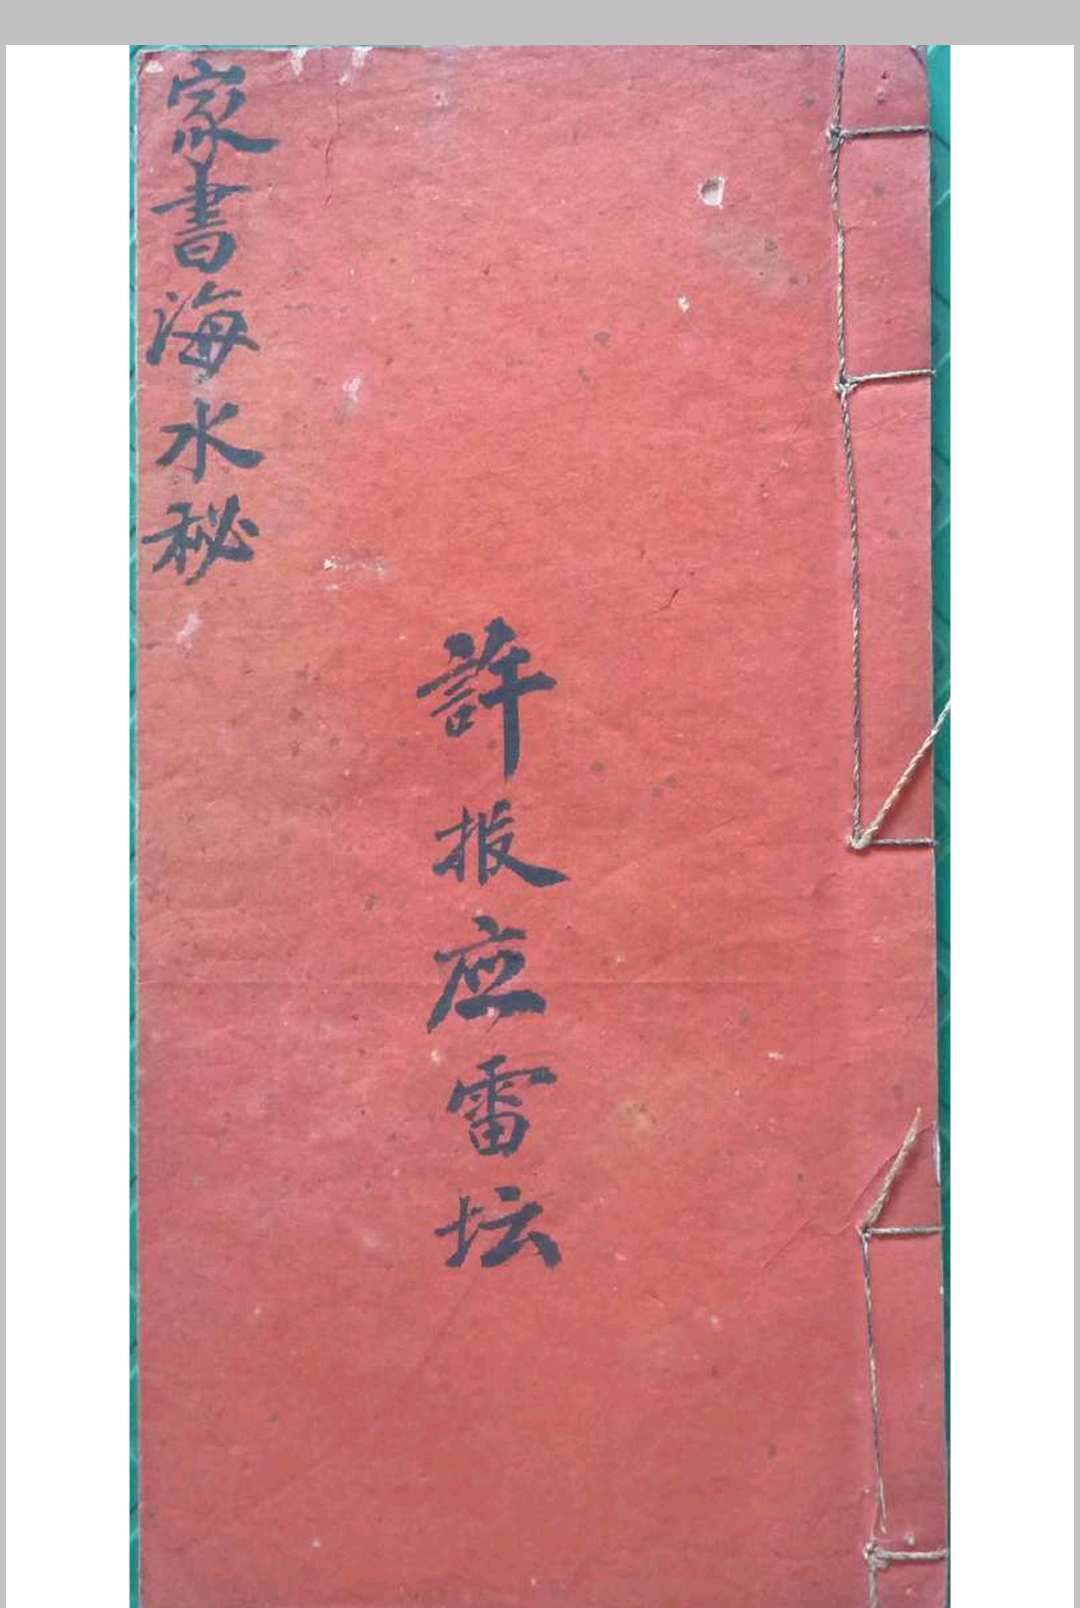 家書海水秘
許报应雷坛